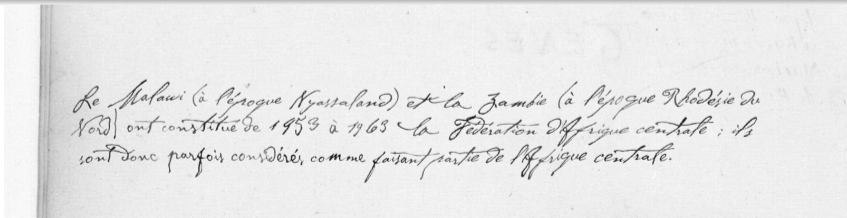 Le Malawi (à l'époque Nyassaland) et la Zambie (à l'époque Rhodésie du
Nord) ont constitué de 1953 à 1963 la Fédération d'Afrique centrale ; ils
sont donc parfois considérés, comme faisant partie de l'Afrique centrale.